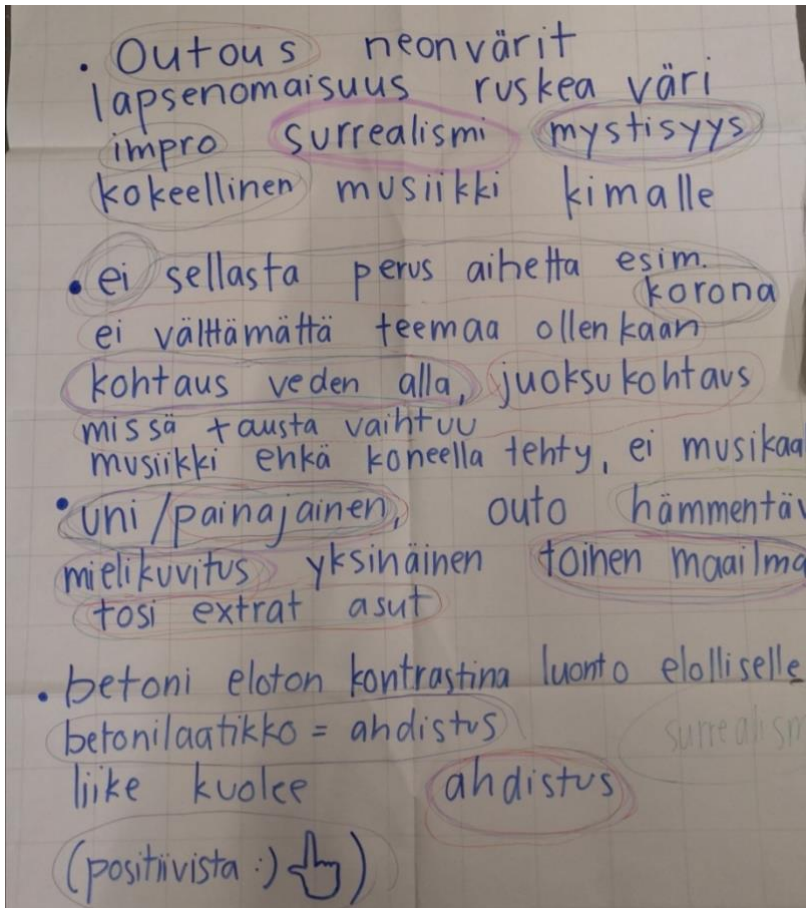 • outous neonvärit
lapsenomaisuus ruskea väri
impro surrealismi mystisyys
kokeellinen musiikki kimalle
• ei sellasta perus aihetta esim.
korona
ei välttämättä teemaa ollenkaan
kohtaus veden alla, juoksukohtaus
missä tausta vaihtuu
musiikki ehkä koneella tehty, ei musikaa
• uni/painajainen, outo hämmentäv
mielikuvitus yksinäinen toinen maailma
tosi extrat asut
• betoni eloton kontrastina luonto elolliselle
betonilaatikko = ahdistus surrealism
liike kuolee ahdistus
(positiivista :) )